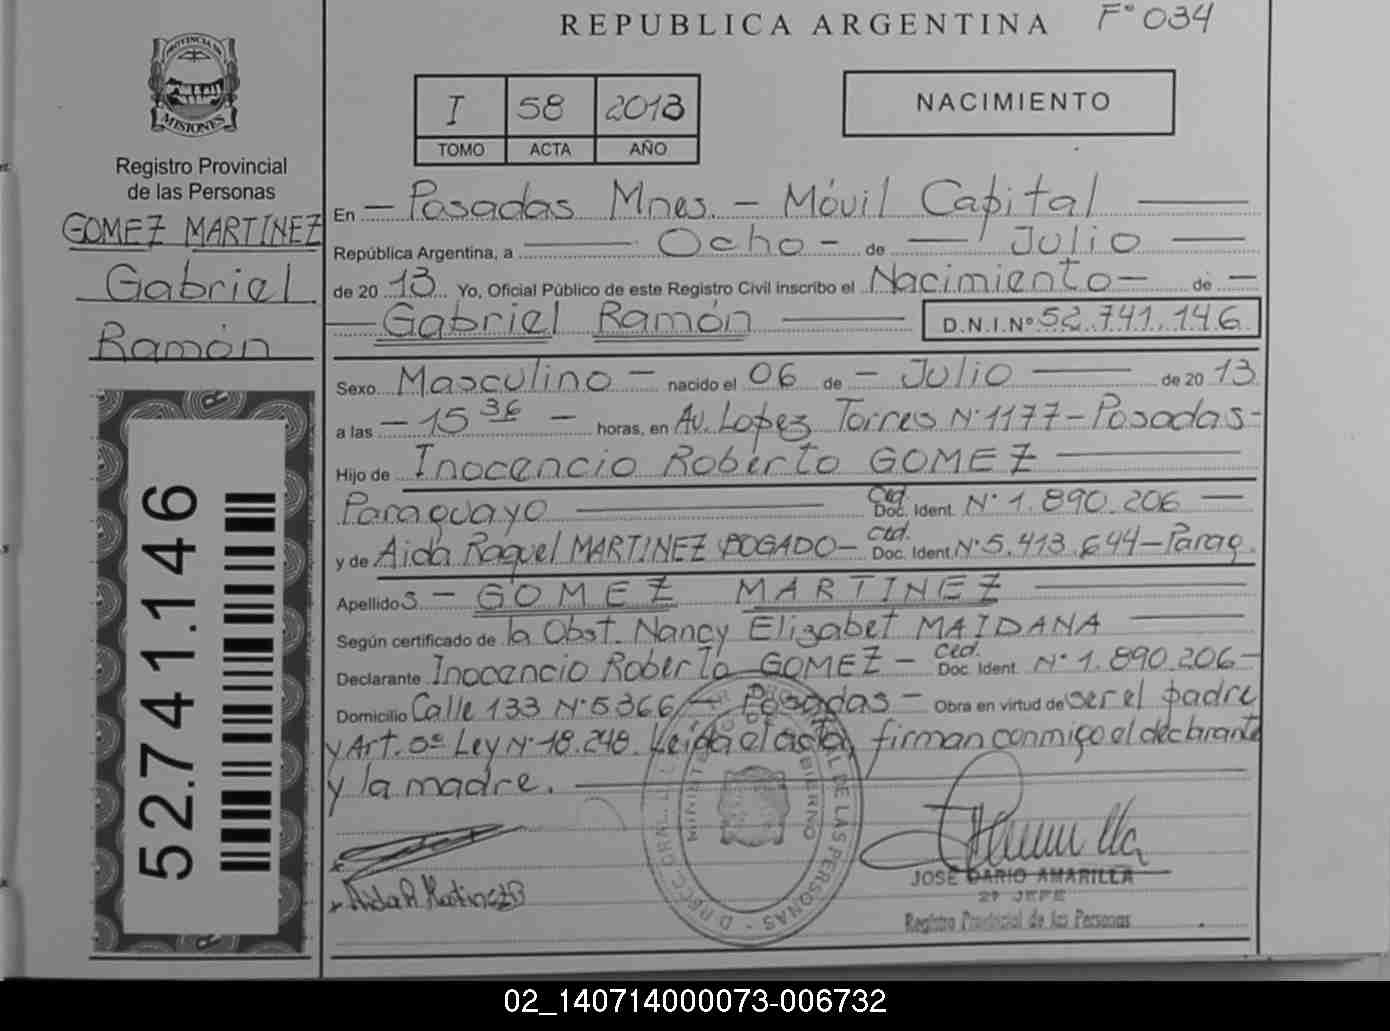 REPUBLICA ARGENTINA Fº 034
PROVINCIA DE
MISIONES
Registro Provincial
de las Personas
GOMEZ MARTINEZ
Gabriel
Ramón
52.741.146
I 58 2013
TOMO ACTA AÑO
NACIMIENTO
En — Posadas Mnes. — Móvil Capital —
República Argentina, a — Ocho — de — Julio —
de 20 13 Yo, Oficial Público de este Registro Civil inscribo el Nacimiento — de —
— Gabriel Ramón — D.N.I.Nº 52.741.146
Sexo Masculino — nacido el 06 de — Julio — de 20 13
a las — 15 36 — horas, en Av. Lopez Torres Nº 1177 — Posadas —
Hijo de Inocencio Roberto GOMEZ —
Paraguayo — Ced. Doc. Ident. Nº 1.890.206 —
y de Aida Raquel MARTINEZ BOGADO — Ced. Doc. Ident. Nº 5.413.644 — Parag.
Apellidos — GOMEZ MARTINEZ —
Según certificado de la Obst. Nancy Elizabet MAIDANA —
Declarante Inocencio Roberto GOMEZ — Ced. Doc. Ident. Nº 1.890.206 —
Domicilio Calle 133 Nº 5366 — Posadas — Obra en virtud de ser el padre
y Art. 5º Ley Nº 18.248. Leida el acta, firman conmigo el declarante
y la madre. —
Aida R Martinez B
JOSE DARIO AMARILLA
2º JEFE
Registro Provincial de las Personas
02_140714000073-006732